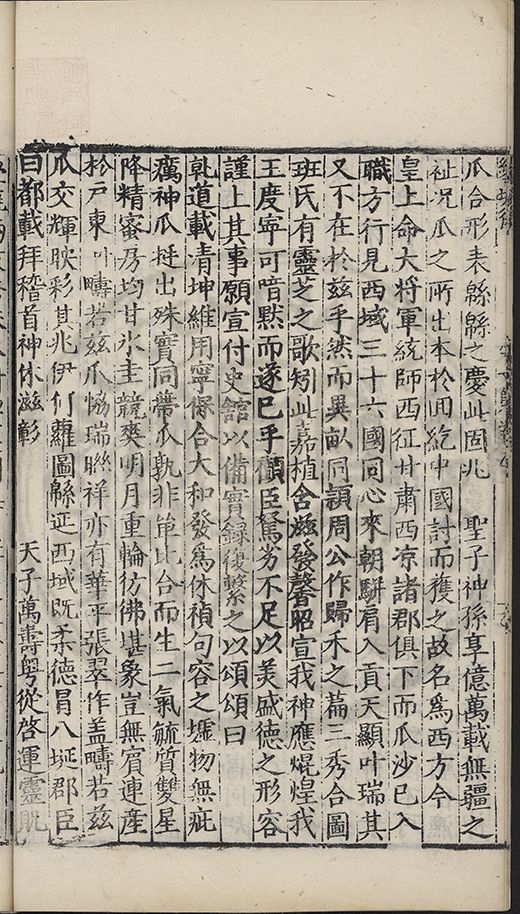 瓜合形表緜緜之慶此固兆　聖子神孫享億萬載無疆之
祉况瓜之所出本於回紇中國討而獲之故名爲西方今
皇上命大將軍統師西征甘肅西凉諸郡俱下而瓜沙已入
職方行見西域三十六國同心來朝駢肩入貢天顯叶瑞其
又不在於兹乎然而異畝同頴周公作歸禾之篇三秀合圖
班氏有靈芝之歌矧此嘉植含滋發馨昭宣我神應焜煌我
王度寜可暗黙而遂巳乎顧臣駑劣不足以美盛德之形容
謹上其事願宣付史舘以備實録復繫之以頌頌曰
乹道載凊坤維用寧保合大和發爲休禎句容之墟物無疵
癘神瓜挺出殊實同蔕瓜孰非單此合而生二氣毓質雙星
降精蜜房均甘氷圭競爽明月重輪彷彿堪象豈無賔連產
於戸東叶疇若兹瓜恊瑞聯祥亦有華平張翠作盖疇若兹
瓜交輝映彩其兆伊何蘿圖緜延西域既柔德冒八埏郡臣
曰都載拜稽首神休滋彰　天子萬壽粤從啓運靈貺